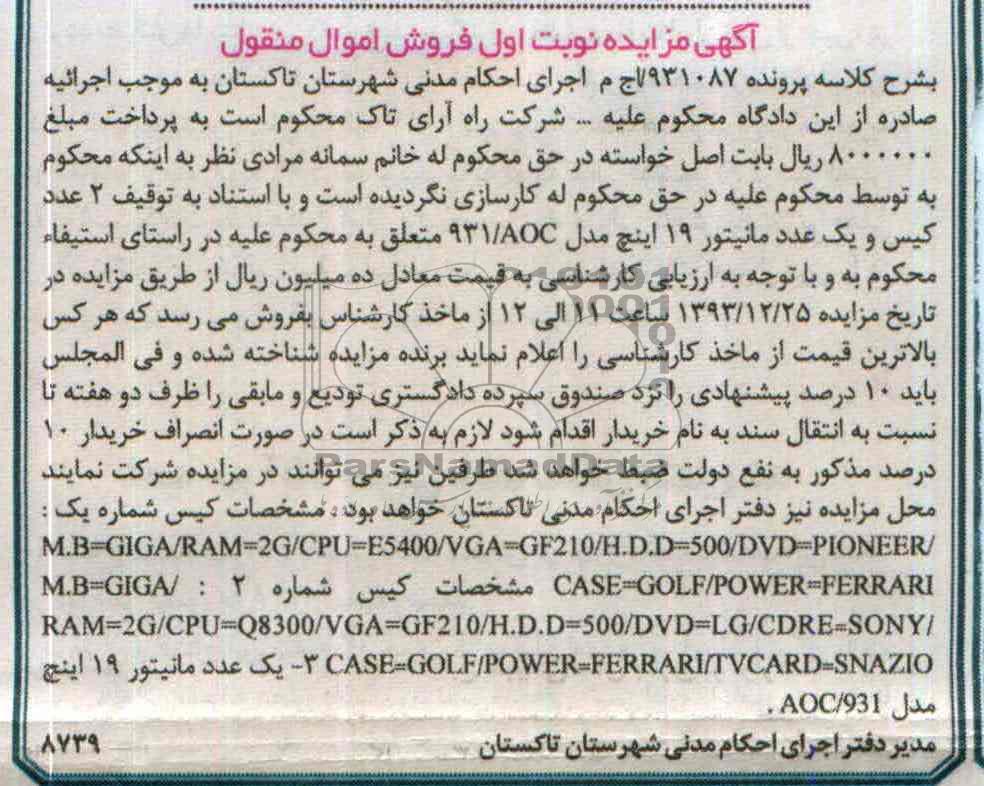 آگهی مزایده نوبت اول فروش اموال منقول
بشرح کلاسه پرونده ۹۳۱۰۸۷/اج م اجرای احکام مدنی شهرستان تاکستان به موجب اجرائیه
صادره از این دادگاه محکوم علیه ... شرکت راه آرای تاک محکوم است به پرداخت مبلغ
۸۰۰۰۰۰۰ ریال بابت اصل خواسته در حق محکوم له خانم سمانه مرادی نظر به اینکه محکوم
به توسط محکوم علیه در حق محکوم له کارسازی نگردیده است و با استناد به توقیف ۲ عدد
کیس و یک عدد مانیتور ۱۹ اینچ مدل ۹۳۱/AOC متعلق به محکوم علیه در راستای استیفاء
محکوم به و با توجه به ارزیابی کارشناسی به قیمت معادل ده میلیون ریال از طریق مزایده در
تاریخ مزایده ۱۳۹۳/۱۲/۲۵ ساعت ۱۱ الی ۱۲ از ماخذ کارشناس بفروش می رسد که هر کس
بالاترین قیمت از ماخذ کارشناسی را اعلام نماید برنده مزایده شناخته شده و فی المجلس
باید ۱۰ درصد پیشنهادی را نزد صندوق سپرده دادگستری تودیع و مابقی را ظرف دو هفته تا
نسبت به انتقال سند به نام خریدار اقدام شود لازم به ذکر است در صورت انصراف خریدار ۱۰
درصد مذکور به نفع دولت ضبط خواهد شد طرفین نیز می توانند در مزایده شرکت نمایند
محل مزایده نیز دفتر اجرای احکام مدنی تاکستان خواهد بود، مشخصات کیس شماره یک :
M.B=GIGA/RAM=2G/CPU=E5400/VGA=GF210/H.D.D=500/DVD=PIONEER/
CASE=GOLF/POWER=FERRARI مشخصات کیس شماره ۲ : M.B=GIGA/
RAM=2G/CPU=Q8300/VGA=GF210/H.D.D=500/DVD=LG/CDRE=SONY/
CASE=GOLF/POWER=FERRARI/TVCARD=SNAZIO ۳- یک عدد مانیتور ۱۹ اینچ
مدل AOC/931 .
مدیر دفتر اجرای احکام مدنی شهرستان تاکستان ۸۷۳۹
ParsNamadData